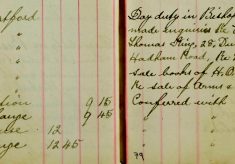 tford
tion 9 15
ange 9 45
12
nge 12 45
Day duty in Bishop
made enquiries Re
Thomas King, 28, Du
Hadham Road, Re
sale books of H.
Re sale of Arms &
Conferred with
"
"
79